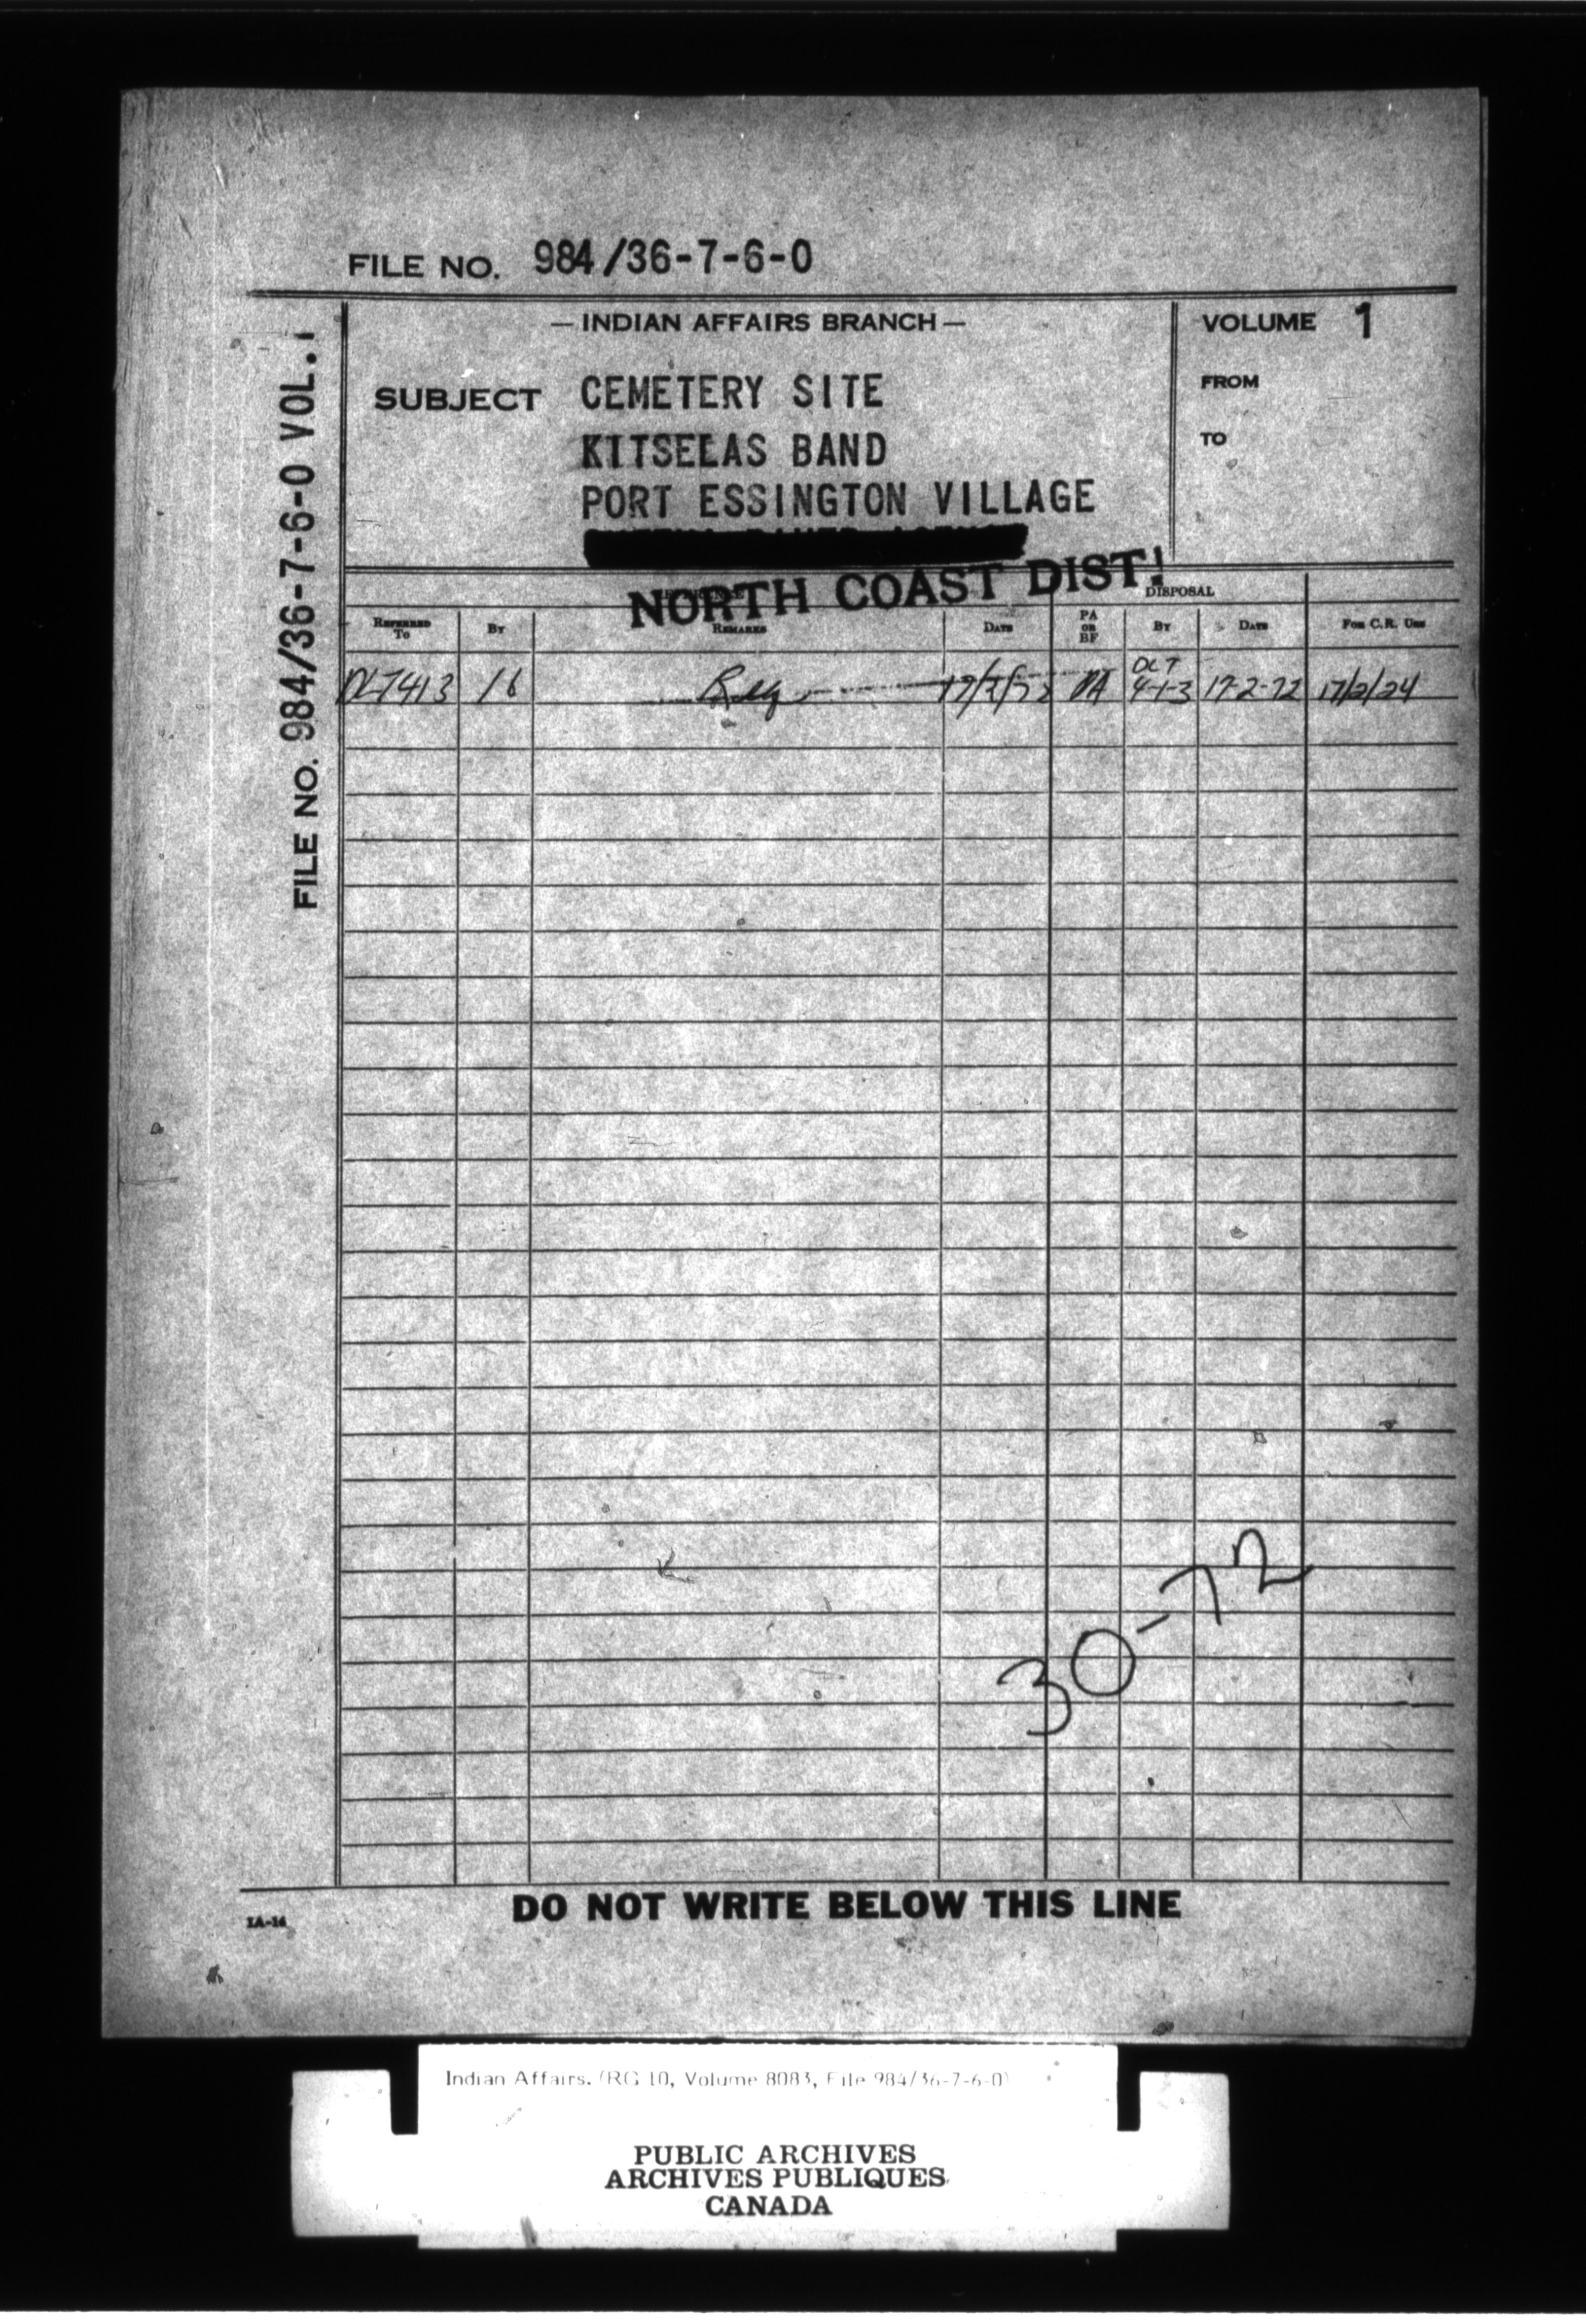 FILE NO. 984/36-7-6-0
— INDIAN AFFAIRS BRANCH —
VOLUME 1
SUBJECT CEMETERY SITE
KITSELAS BAND
PORT ESSINGTON VILLAGE
FROM
TO
FILE NO. 984/36-7-6-0 VOL. 1
NORTH COAST DIST.
DISPOSAL
REFERRED TO BY REMARKS DATE PA OR BF BY DATE FOR C.R. USE
16 17/2/72 PA DLT 4-1-3 17-2-72 17/2/24
30-72
DO NOT WRITE BELOW THIS LINE
IA-14
Indian Affairs. (RG 10, Volume 8083, File 984/36-7-6-0)
PUBLIC ARCHIVES
ARCHIVES PUBLIQUES
CANADA